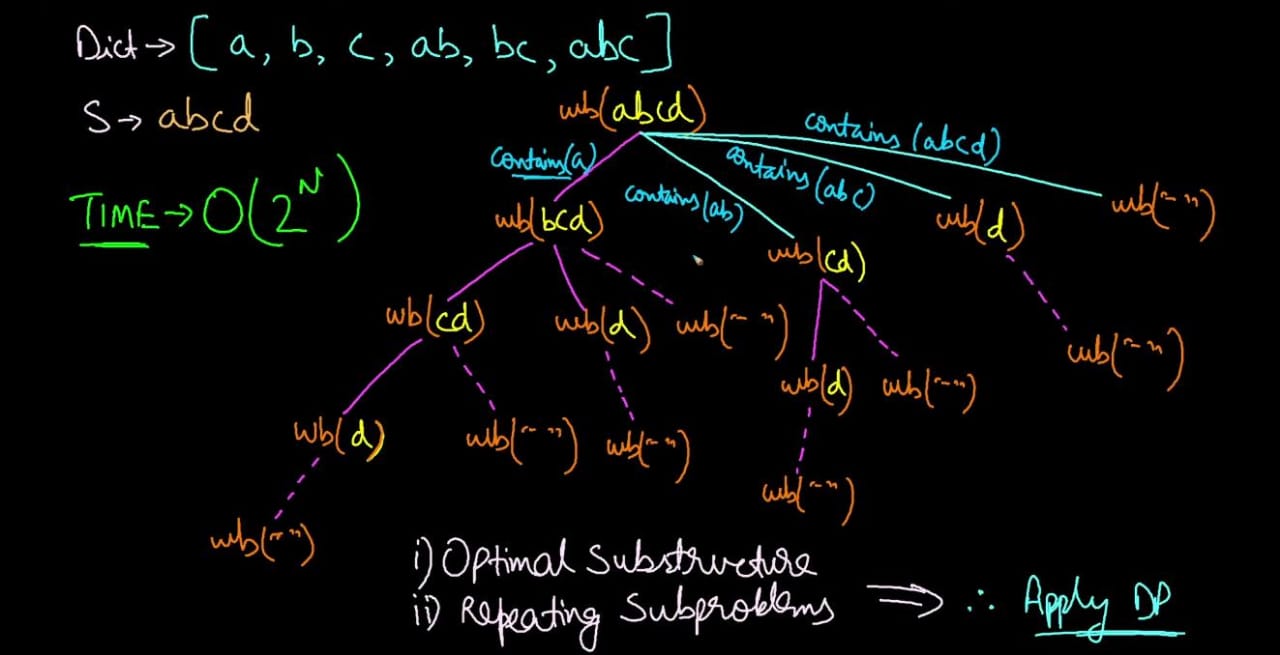 Dict → [a, b, c, ab, bc, abc]
S → abcd
wb(abcd)
contains (abcd)
contains(a)
contains (abc)
contains(ab)
TIME → O(2^N)
wb(bcd)
wb(cd)
wb(d)
wb(" ")
wb(cd)
wb(d)
wb(" ")
wb(d)
wb(" ")
wb(" ")
wb(d)
wb(" ")
wb(" ")
wb(" ")
wb(" ")
i) Optimal Substructure
ii) Repeating Subproblems
⇒ ∴ Apply DP